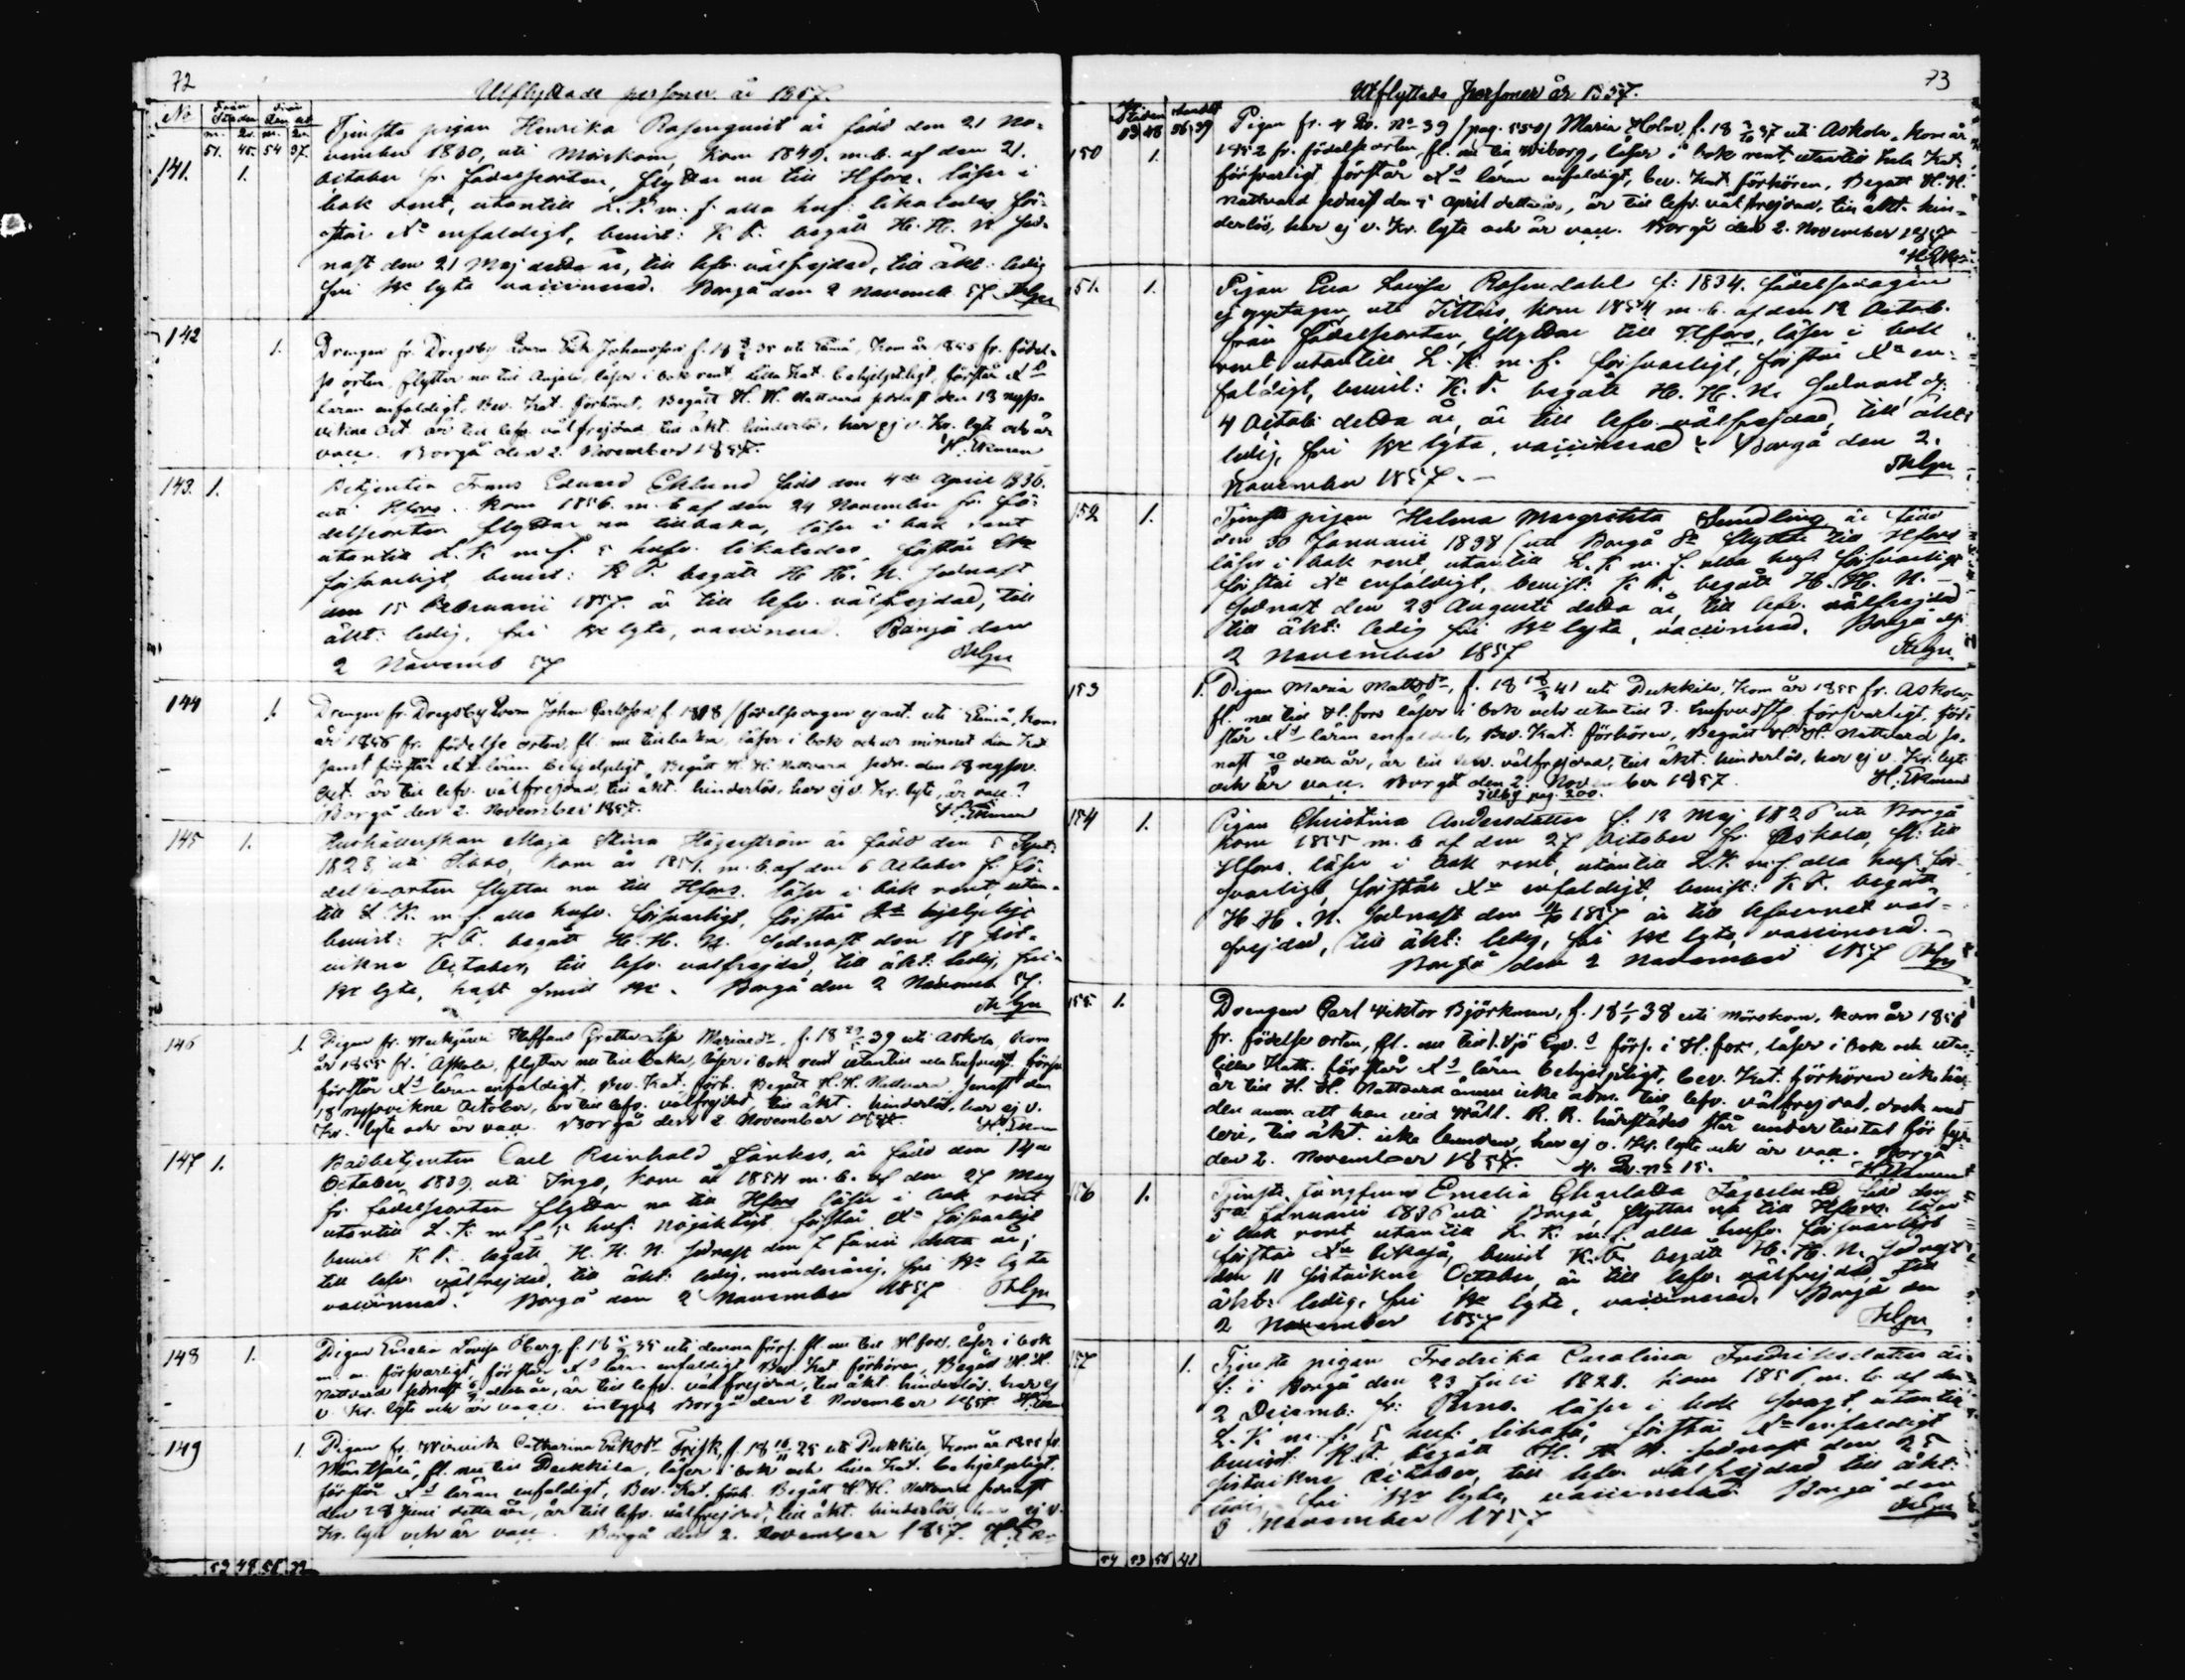 72
Utflyttade personer år 1857.
No
Från Staden
Från Landt
m. qv. m. qv.
51. 45. 54 37.
141. 1.
Tjenste pigan Henrika Rosenqvist är född den 21 No-
vember 1830, uti Mörskom, kom 1849. m. b. af den 21.
October fr. födelseorten, flyttar nu till Hfors. läser i
bok rent, utantill L. K. m. f. alla huf: likaledes för-
står Xn enfaldigt, bevist: K F. begått H. H. N sed-
nast den 21 Maj detta år, till lefv. välfrejdad, till äkt. ledig
fri Ve lyte vaccinerad. Borgå den 2 Novemb. 57
142 1.
Drengen fr. Drägsby Johansson f. 18 35 uti Elimä, kom år 1855 fr. födel-
se orten, flyttar nu till Anjala, läser i bok rent, lilla Kat. behjelpligt, förstår Xd
läran enfaldigt, Bev. Kat. förhöret, Begått H. H. Nattvard sednast den 18 nyss
vikne Oct. är till lefv. välfrejdad, till äkt. hinderlös, har ej v. Kr. lyte och är
vacc. Borgå den 2. November 1857. H. Ekman
143. 1.
Betjenten Frans Edvard Eklund född den 4de April 1836.
uti Hfors. kom 1856. m. b af den 24 November fr. fö-
delseorten flyttar nu tillbaka, läser i bok rent
utantill L. K. m. f. 5 hufv. likaledes, förstår Xn
försvarligt, bevist: K F. begått H. H. N. sednast
den 15 Februarii 1857. är till lefv. välfrejdad, till
äkt: ledig, fri Ve lyte, vaccinerad. Borgå den
2 Novemb 57
144 1.
Drengen fr. Drägsby Johan Carlsson f. 1838 (födelsedagen ej ant. uti Elimä, kom
år 1856 fr. födelse orten, fl. nu tillbaka, läser i bok och ur minnet lilla Kat
samt förstår Xd läran behjelpligt, Begått H. H. Nattvard sedn. den 18 nyssv.
Oct. är till lefv. välfrejdad, till äkt. hinderlös, har ej v. Kr. lyte, är vacc.?
Borgå den 2. November 1857. H. Ekman
145 1.
Hushållerskan Maja Stina Högerström är född den 5 Sept:
1828, uti Sibbo, kom år 1851. m. b. af den 6 October fr. fö-
delseorten flyttar nu till Hfors. läser i bok rent, utan-
till L. K. m. f. alla hufv. försvarligt, förstår Xn hjelpligt
bevist: K. F. begått H. H. N. sednast den 18 sist-
vikne October, till lefv. välfrejdad, till äkt: ledig, fri
Ve lyte, haft Ve. Borgå den 2 Novemb 57.
146 1.
Pigan fr. Greta Lisa Mariaedr, f. 18 39 uti Askola, kom
år 1855 fr. Askola, flyttar nu tillbaka, läser i bok rent utantill alla hufvudst. försv.
förstår Xd läran enfaldigt, Bev. Kat. förh. Begått H. H. Nattvard, senast den
18 nyssvikne October, är till lefv. välfrejdad till äkt. hinderlös, har ej v.
Kr. lyte och är vacc. Borgå den 2 November 1857. H. Ekman
147 1.
Badbetjenten Carl Reinhold Jankes, är född den 14de
October 1839 uti Ingo, kom år 1854 m. b. af den 27 Maj
fr. födelseorten flyttar nu till Hfors läser i bok rent
utantill L. K m. f. 5 huf: nöjaktigt förstår Xn försvarligt
bevist K F. begått H. H. N. sednast den 7 Junii detta år,
till lefv. välfrejdad, till äkt: ledig, minderårig, fri Ve lyte
vaccinerad. Borgå den 2 November 1857
148 1.
Pigan Emelia Lovisa Öberg, f. 18 35 uti denna förs. fl. nu till H fors, läser i bok
m. m. försvarligt, förstår Xd läran enfaldigt, Bev. Kat. förhören, Begått H. H.
Nattvard sednast detta år, är till lefv. välfrejdad, till äkt. hinderlös. har ej
v. Kr. lyte och är vacc. Borgå den 2 November 1857.
149 1.
Pigan fr. Wirvik Catharina Eriksdr Frisk, f. 18 25 uti Pukkila, kom år 1855 fr.
Mäntsälä, fl. nu till Pukkila, läser i bok och lilla Kat. behjelpligt.
förstår Xd läran enfaldigt, Bev. Kat. förh. Begått H. H. Nattvard sednast
den 28 Juni detta år, är till lefv. välfrejdad, till äkt. hinderlös, har ej v.
Kr. lyte och är vacc. Borgå den 2. November 1857. H. Ek-
73
Utflyttade Personer år 1857.
Staden Landet
53 48 56 39
150 1.
Pigan fr. 4 Qv. No 39 / pag. 550/ Maria Holm, f. 18 37 uti Askola, kom år
1852 fr. födelse orten, fl. nu till Wiborg, läser i bok rent, utantill hela Kat.
försvarligt, förstår Xd läran enfaldigt, bev. Kat. förhören, Begått H. H.
nattvard sednast den 5 April detta år, är till lefv. välfrejdad, till äkt. hin-
derlös, har ej v. Kr. lyte och är vacc. Borgå den 2. November 1857
H. Ekm
151. 1.
Pigan Eva Lovisa Rosendahl f: 1834. födelsedagen
ej upptagen, uti Sibbo, kom 1854 m. b. af den 12 Octob.
från födelseorten, flyttar till Hfors, läser i bok
rent utantill L. K. m. f. försvarligt, förstår Xn en-
faldigt, bevist: K. F. begått H. H. N. sednast d.
4 Octob: detta år, är till lefv. välfrejdad, till äkt:
ledig, fri Ve lyte, vaccinerad. Borgå den 2.
November 1857.
152 1.
Tjenste pigan Helena Margretha Sundling är född
den 30 Januarii 1838 uti Borgå Sn flyttar till Hfors
läser i bok rent, utantill L. K. m. f. alla huf: försvarligt
förstår Xn enfaldigt, bevist: K. F. begått H. H. N.
sednast den 23 Augusti detta år, till lefv. välfrejdad
till äkt: ledig fri Ve lyte, vaccinerad. Borgå d.
2 November 1857
153 1.
Pigan Maria Mattsdr, f. 18 41 uti Pukkila, kom år 1855 fr. Askola,
fl. nu till H. fors läser i bok och utantill 3. hufvudst. försvarligt, för-
står Xd läran enfaldigt, Bev. Kat. förhören, Begått H. H. Nattvard se-
nast detta år, är till lefv. välfrejdad, till äkt. hinderlös, har ej v. Kr. lyte
och är vacc. Borgå den 2. November 1857. H. Ekman
pag. 200.
154 1.
Pigan Christina Andersdotter f: 12 Maj 1826 uti Borgå
kom 1855 m. b af den 27 October fr. Askola, fl: till
Hfors. läser i bok rent, utantill L K. m. f alla huf: för-
svarligt, förstår Xn enfaldigt, bevist: K F. begått
H. H. N. sednast den 11/10 1857 är till lefvernet väl-
frejdad, till äkt: ledig, fri Ve lyte, vaccinerad.
Borgå den 2 November 1857
155 1.
Drengen Carl Viktor Björkman, f. 18 38 uti Mörskom, kom år 1856
fr. födelse orten, fl. nu till förs. i H:fors, läser i bok och utan-
lilla Kath. förstår Xd läran behjelpligt, bev. Kat. förhören
är till H. H. Nattvard ännu icke adm. till lefv. välfrejdad, dock med
den anm. att han vid Wäll. R. R. härstädes står under tilltal för fyl-
leri, till äkt. icke bunden, har ej v. Kr. lyte och är vacc. Borgå
den 2. November 1857. 4. Qv. no 15. H. Ekman
156 1.
Tjenste Jungfrun Emelia Charlotta Fagerlund född den
5te Januarii 1836 uti Borgå, flyttar nu till Hfors. läser
i bok rent utantill L. K. m. f. alla hufv. försvarligt
förstår Xn likaså, bevist K. F. begått H. H. N. sednast
den 11 sistvikne October, är till lefv. välfrejdad, till
äkt: ledig, fri Ve lyte, vaccinerad. Borgå den
2 November 1857
157 1.
Tjenste pigan Fredrika Carolina Fredriksdotter är
f: i Borgå den 23 Juli 1828. kom 1856 m. b. af den
2 Decemb: fr: Perno. läser i bok svagt, utantill
L. K. m. f. 5 huf. likaså, förstår Xn enfaldigt
bevist: K. F. begått H. H. N. sednast den 25
sistvikne October, till lefv. välfrejdad till äkt:
ledig fri Ve lyte, vaccinerad Borgå den
3 November 1857
54 53 56 41